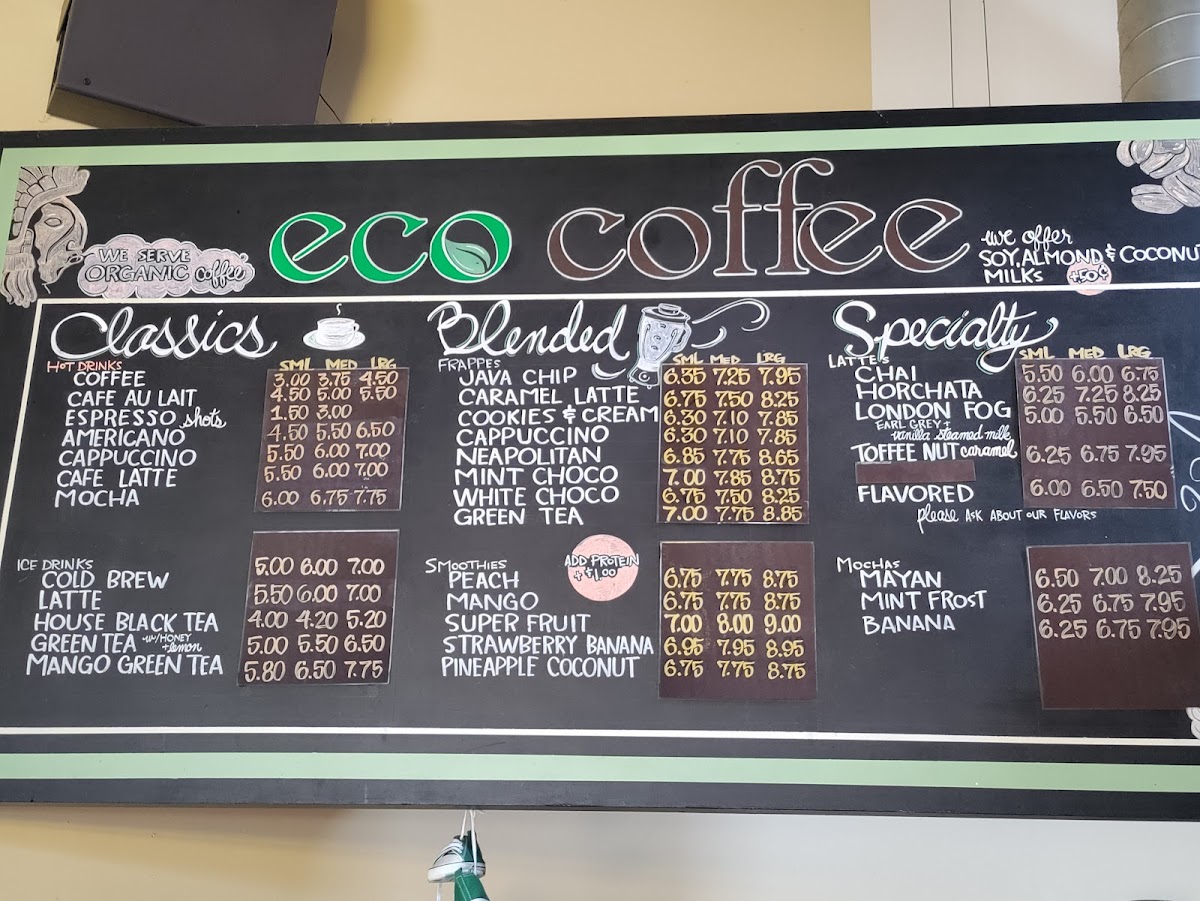 WE SERVE
ORGANIC coffee
eco coffee
we offer
SOY, ALMOND & COCONU
MILKS +50¢
Classics
HOT DRINKS SML MED LRG
COFFEE 3.00 3.75 4.50
CAFE AU LAIT 4.50 5.00 5.50
ESPRESSO shots 1.50 3.00
AMERICANO 4.50 5.50 6.50
CAPPUCCINO 5.50 6.00 7.00
CAFE LATTE 5.50 6.00 7.00
MOCHA 6.00 6.75 7.75
ICE DRINKS
COLD BREW 5.00 6.00 7.00
LATTE 5.50 6.00 7.00
HOUSE BLACK TEA 4.00 4.20 5.20
GREEN TEA w/HONEY + lemon 5.00 5.50 6.50
MANGO GREEN TEA 5.80 6.50 7.75
Blended
FRAPPES SML MED LRG
JAVA CHIP 6.35 7.25 7.95
CARAMEL LATTE 6.75 7.50 8.25
COOKIES & CREAM 6.30 7.10 7.85
CAPPUCCINO 6.30 7.10 7.85
NEAPOLITAN 6.85 7.75 8.65
MINT CHOCO 7.00 7.85 8.75
WHITE CHOCO 6.75 7.50 8.25
GREEN TEA 7.00 7.75 8.85
SMOOTHIES
ADD PROTEIN
+ $1.00
PEACH 6.75 7.75 8.75
MANGO 6.75 7.75 8.75
SUPER FRUIT 7.00 8.00 9.00
STRAWBERRY BANANA 6.95 7.95 8.95
PINEAPPLE COCONUT 6.75 7.75 8.75
Specialty
LATTE'S SML MED LRG
CHAI 5.50 6.00 6.75
HORCHATA 6.25 7.25 8.25
LONDON FOG 5.00 5.50 6.50
EARL GREY +
vanilla steamed milk
TOFFEE NUT caramel 6.25 6.75 7.95
FLAVORED 6.00 6.50 7.50
please ASK ABOUT OUR FLAVORS
MOCHAS
MAYAN 6.50 7.00 8.25
MINT FROST 6.25 6.75 7.95
BANANA 6.25 6.75 7.95